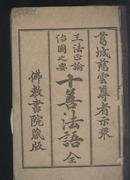 葛城慈雲尊者示衆
王法正論
治國之要
十善法語 全
佛教書院藏版